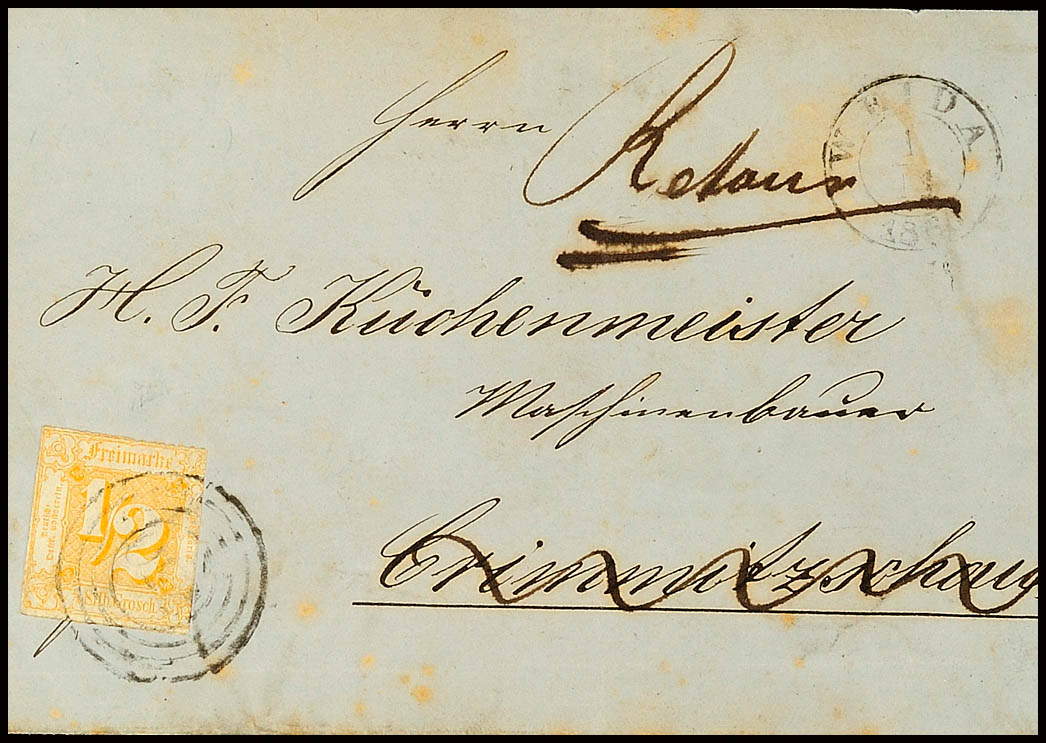 Herrn
Retour
WEIDA
H. F. Küchenmeister
Maschinenbauer
Crimmitzschau
Freimarke
1/2
Silb. Grosch.